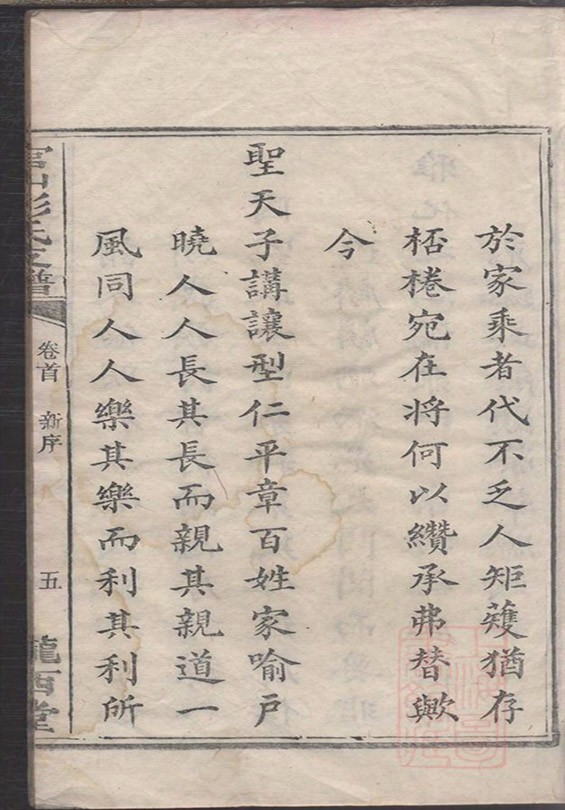 於家乘者代不乏人矩矱猶存
桮棬宛在将何以纘承弗替歟
今
聖天子講讓型仁平章百姓家喻戶
曉人人長其長而親其親道一
風同人人樂其樂而利其利所
卷首 新序
五